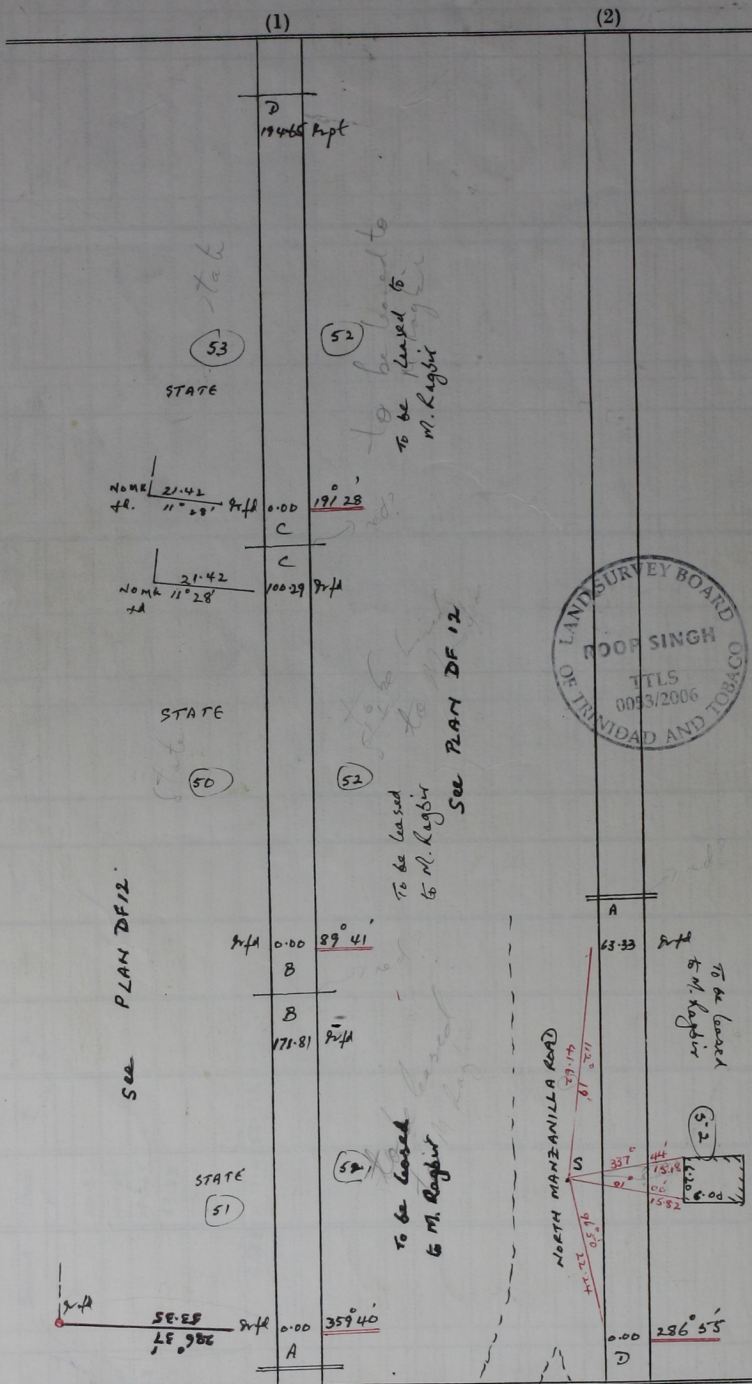 (1)
D
194.65 Irpt
53
STATE
52
To be leased to
M. Ragbir
NO MK
fd.
21.42
11° 28'
Irfd
0.00
191° 28'
C
C
NO MK
fd
21.42
11° 28'
100.29
Irfd
STATE
50
52
To be leased
to M. Ragbir
See PLAN DF 12
See PLAN DF 12
Irfd
0.00
89° 41'
B
B
171.81
Irfd
STATE
51
52
To be leased
to M. Ragbir
Irfd
53.35
286° 37'
Irfd
0.00
359° 40'
A
(2)
LAND SURVEY BOARD
OF TRINIDAD AND TOBAGO
ROOP SINGH
TTLS
0093/2006
A
63.33
Irfd
To be leased
to M. Ragbir
52
NORTH MANZANILLA ROAD
112° 19'
41.62
S
337° 44'
15.18
01° 00'
15.82
6.20
96° 50'
22.24
0.00
286° 55'
D